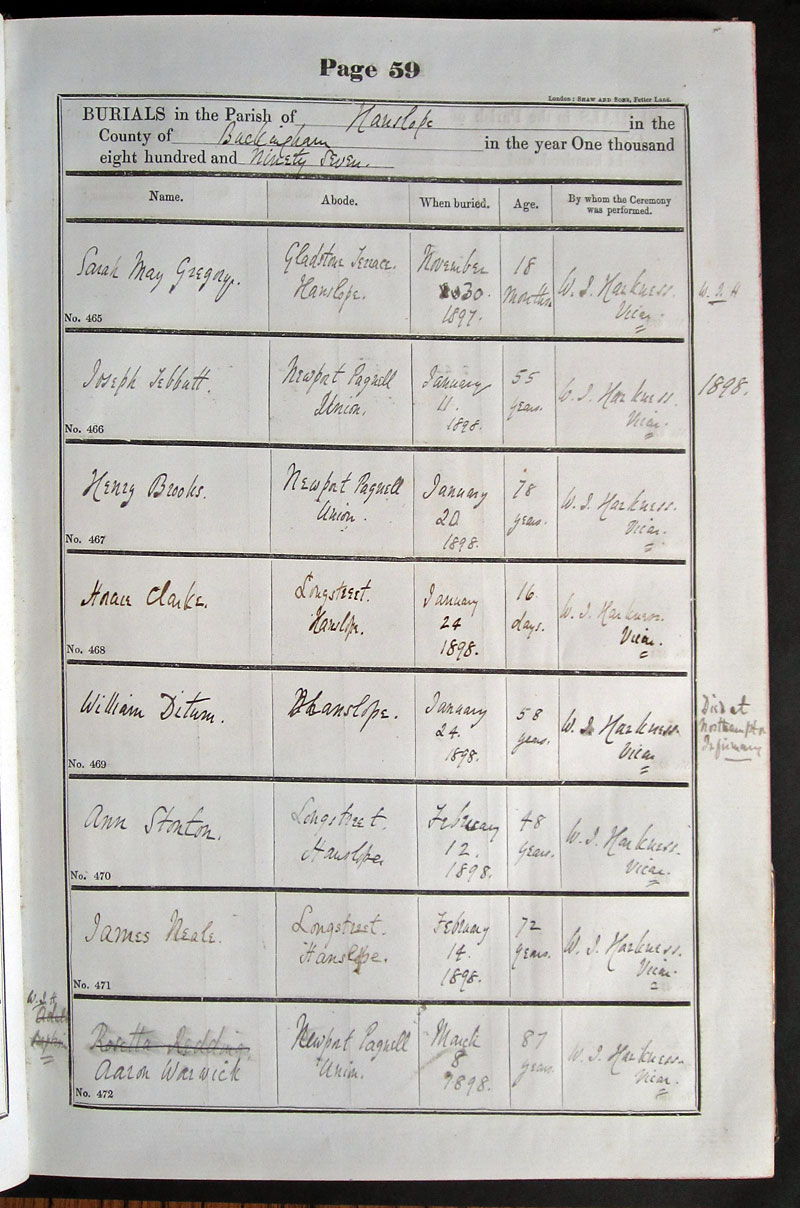 Page 59
London: SHAW AND SONS, Fetter Lane.
BURIALS in the Parish of Hanslope in the
County of Buckingham in the year One thousand
eight hundred and Ninety Seven.
Name. Abode. When buried. Age. By whom the Ceremony was performed.
Sarah May Gregory.
Gladstone Terrace.
Hanslope.
November
30.
1897.
18
Months
W. J. Harkness.
Vicar.
No. 465
Joseph Tebbutt.
Newport Pagnell
Union.
January
11.
1898.
55
years.
W. J. Harkness.
Vicar.
1898.
No. 466
Henry Brooks.
Newport Pagnell
Union.
January
20
1898.
78
years.
W. J. Harkness.
Vicar.
No. 467
Horace Clarke.
Longstreet.
Hanslope.
January
24
1898.
16
days.
W. J. Harkness.
Vicar.
No. 468
William Ditum.
Hanslope.
January
24.
1898.
58
years.
W. J. Harkness.
Vicar
Died at
Northampton
Infirmary
No. 469
Ann Stonton.
Longstreet.
Hanslope
February
12.
1898.
48
years.
W. J. Harkness.
Vicar.
No. 470
James Neale.
Longstreet.
Hanslope.
February
14.
1898.
72
years.
W. J. Harkness.
Vicar.
No. 471
W. J. H.
Rosetta Redding
Aaron Warwick
Newport Pagnell
Union.
March
8
1898.
87
years.
W. J. Harkness.
Vicar.
No. 472